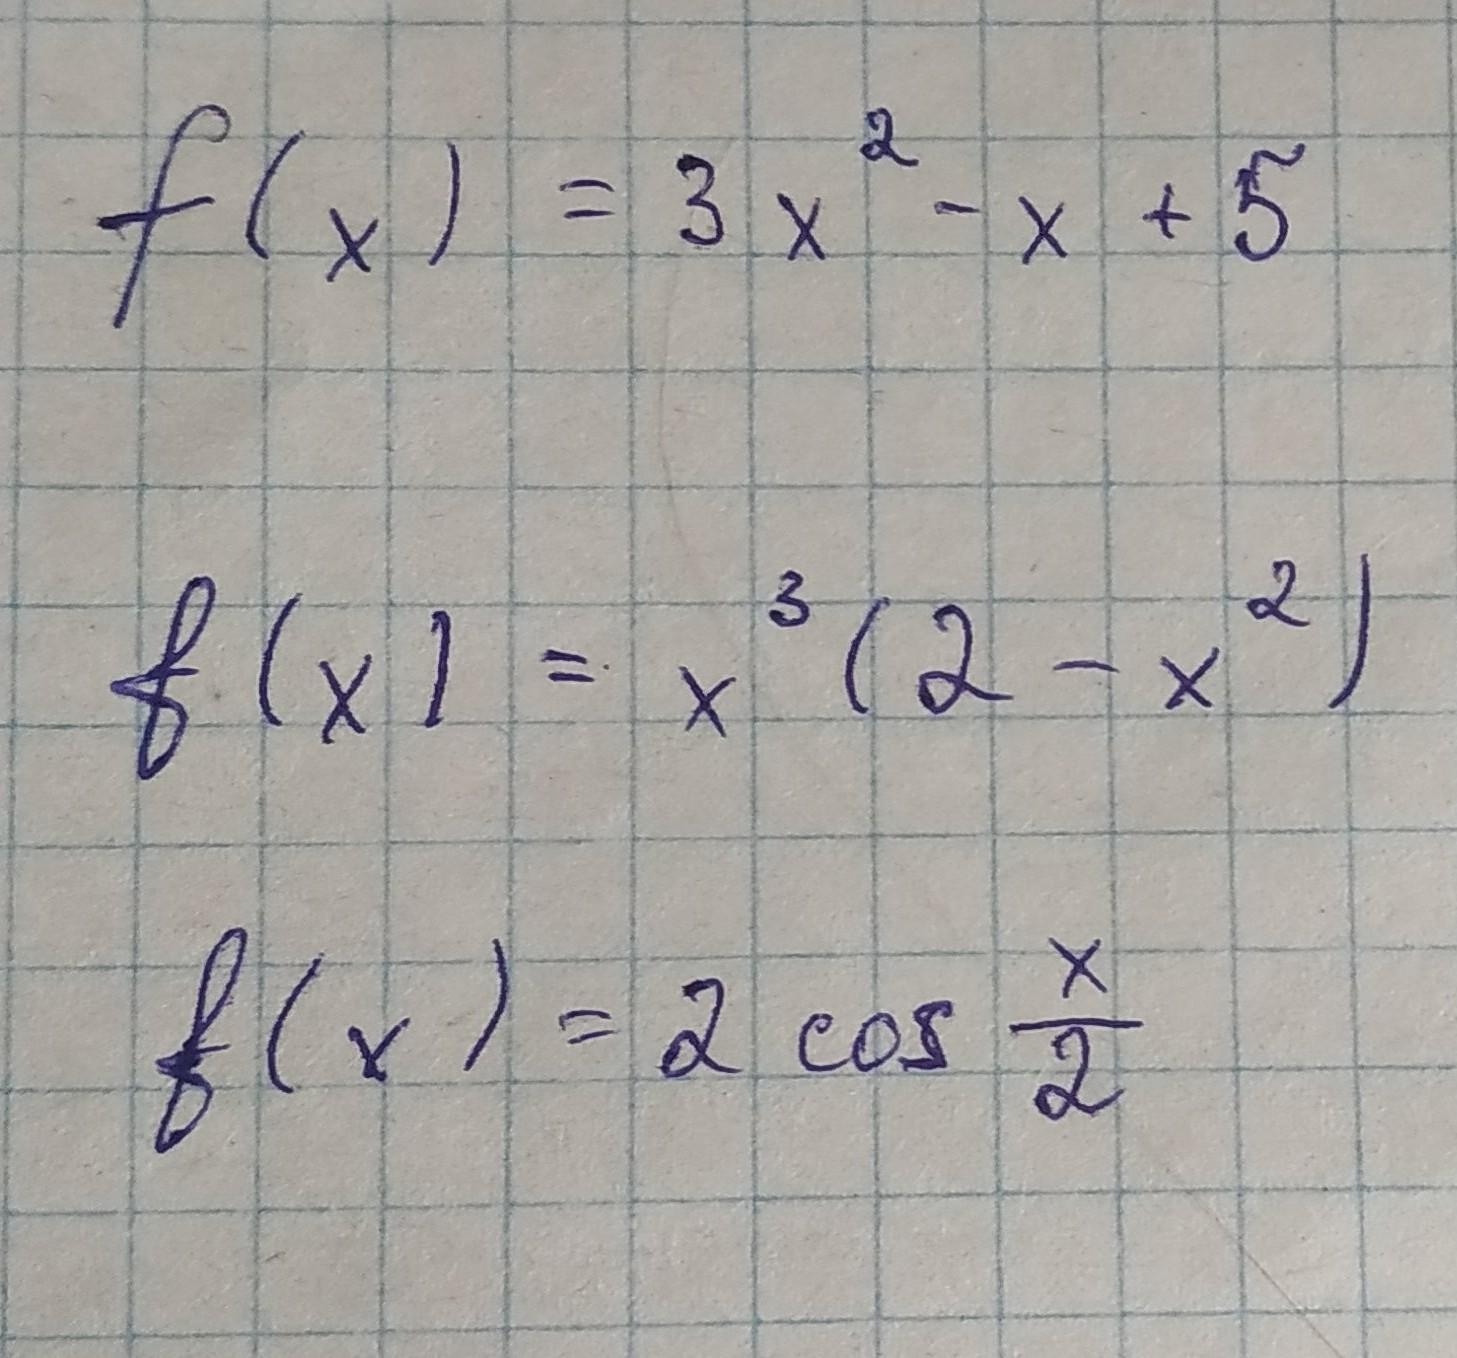 f(x) = 3x² - x + 5
f(x) = x³(2 - x²)
f(x) = 2 cos x/2